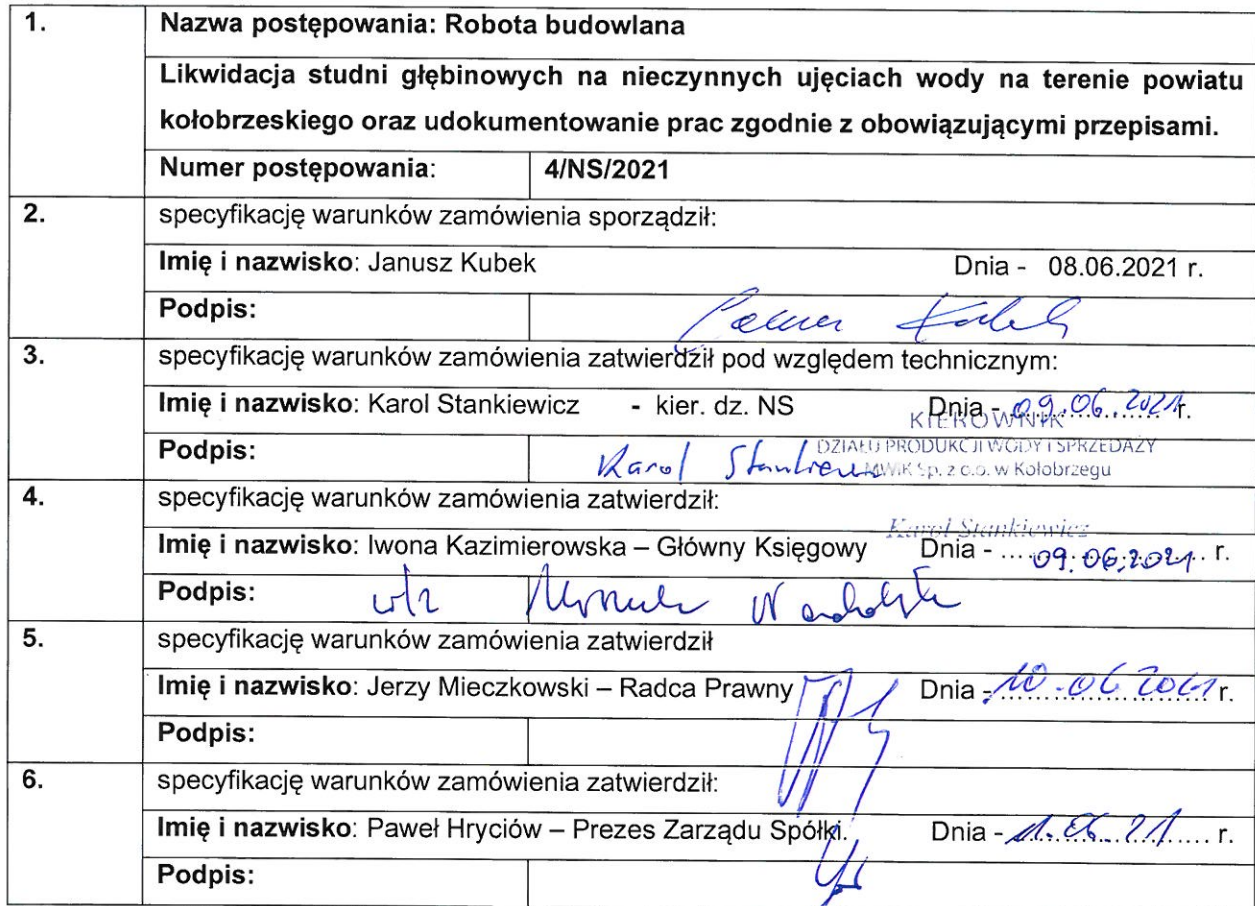 1.
Nazwa postępowania: Robota budowlana
Likwidacja studni głębinowych na nieczynnych ujęciach wody na terenie powiatu
kołobrzeskiego oraz udokumentowanie prac zgodnie z obowiązującymi przepisami.
Numer postępowania: 4/NS/2021
2.
specyfikację warunków zamówienia sporządził:
Imię i nazwisko: Janusz Kubek Dnia - 08.06.2021 r.
Podpis:
3.
specyfikację warunków zamówienia zatwierdził pod względem technicznym:
Imię i nazwisko: Karol Stankiewicz - kier. dz. NS Dnia - 09.06.2021 r.
KIEROWNIK
DZIAŁU PRODUKCJI WODY I SPRZEDAŻY
Podpis: Karol Stankiewicz MWiK Sp. z o.o. w Kołobrzegu
4.
specyfikację warunków zamówienia zatwierdził:
Karol Stankiewicz
Imię i nazwisko: Iwona Kazimierowska – Główny Księgowy Dnia - 09.06.2021 r.
Podpis:
5.
specyfikację warunków zamówienia zatwierdził
Imię i nazwisko: Jerzy Mieczkowski – Radca Prawny Dnia - 10.06.2021 r.
Podpis:
6.
specyfikację warunków zamówienia zatwierdził:
Imię i nazwisko: Paweł Hryciów – Prezes Zarządu Spółki. Dnia - 11.06.21 r.
Podpis: